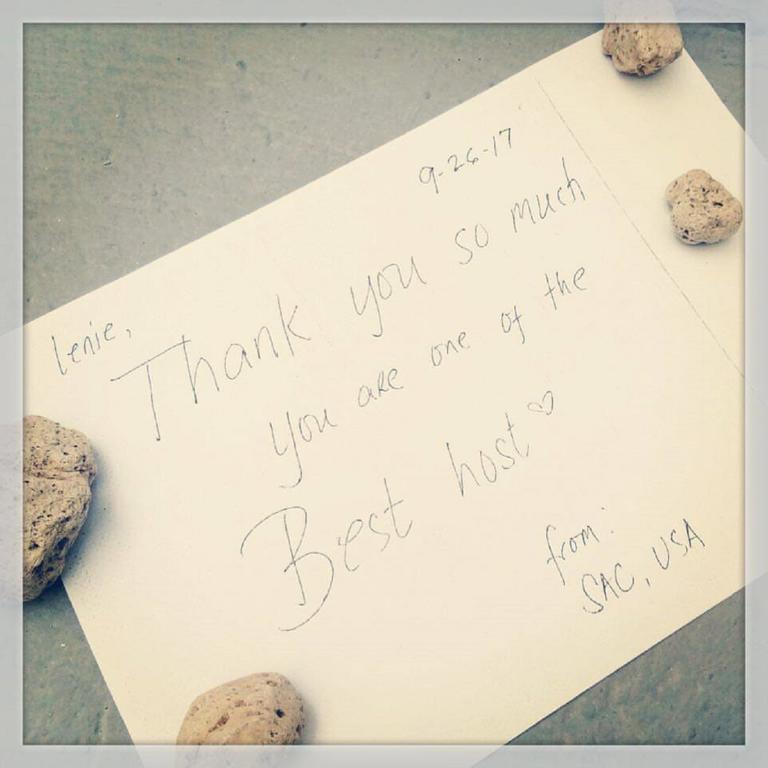 9-26-17
lenie,
Thank you so much
you are one of the
Best host ♡
from:
SAC, USA